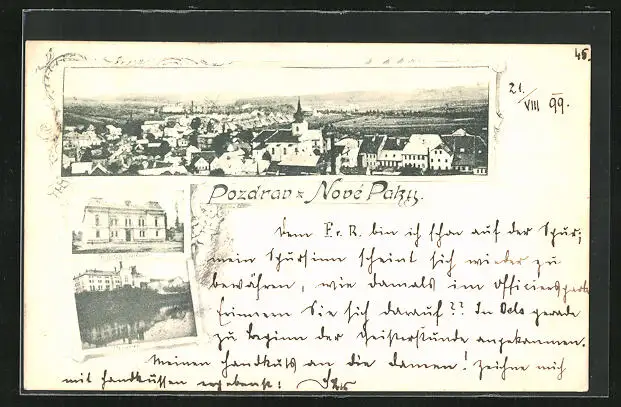 46.
21./VIII 99.
Pozdrav z Nové Paky.
Dem F. R. bin ich schon auf der Spur;
mein Spürsinn scheint sich wieder zu
bewähren, wie damals im Officierspark
Erinnern Sie sich darauf?? In Oels gerade
zu Beginn der Geisterstunde angekommen.
Meinen Handkuß an die Damen! zeichne mich
mit Handküssen ergebenst: